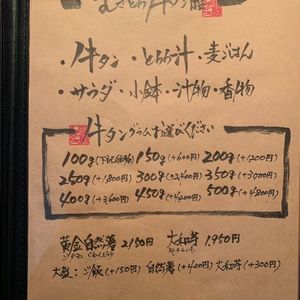 むぎとろ牛タン膳
・牛タン・とろろ汁・麦ごはん
・サラダ・小鉢・汁物・香物
牛タングラムお選びください
100g(下記価格) 150g(+600円) 200g(+1200円)
250g(+1800円) 300g(+2400円) 350g(+3000円)
400g(+3600円) 450g(+4200円) 500g(+4800円)
黄金自然薯 2150円 大和芋 1950円
こがねじねんじょ やまといも
大盛:ご飯(+150円) 自然薯(+400円) 大和芋(+300円)